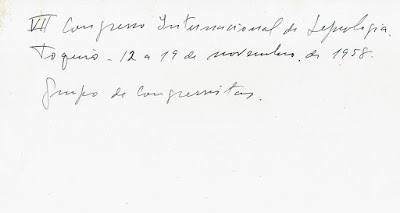 VII Congresso Internacional de Leprologia.
Toquio - 12 a 19 de novembro de 1958.
Grupo de congressistas.